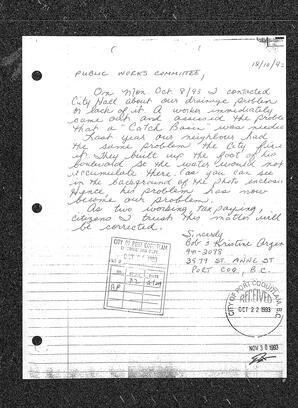 18/10/93
PUBLIC WORKS COMMITTEE,
On Mon. Oct 8/93 I contacted
City Hall about our drainage problem
or lack of it. A worker immediately
came out and assessed the problem
that a "Catch Basin" was needed
Last year our neighbour had
the same problem the City fixed
it. They built up the foot of his
backyard so the water would not
accumulate there. (as you can see
in the background of the photo enclosed
Hence, his problem has now
become our problem.
As two working, tax paying,
citizens I trust this matter will
be corrected.
Sincerely
Bob & Kristine
3579 ST. ANNE ST
PORT COQ., B.C.
CITY OF PORT COQUITLAM
CITY OF PORT COQUITLAM, B.C.
RECEIVED
OCT 22 1993
NOV 30 1993